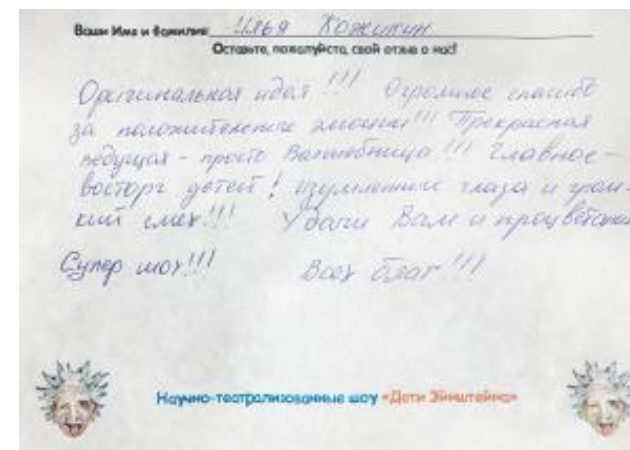 Ваши Имя и Фамилия: Илья Кожикин
Оставьте, пожалуйста, свой отзыв о нас!
Оригинальная идея!!! Огромное спасибо
за положительные эмоции!!! Прекрасная
ведущая - просто Волшебница!!! Главное -
восторг детей! изумленные глаза и гром-
кий смех!!! Удачи Вам и процветания
Супер шоу!!! Всех благ!!!
Научно-театрализованные шоу «Дети Эйнштейна»